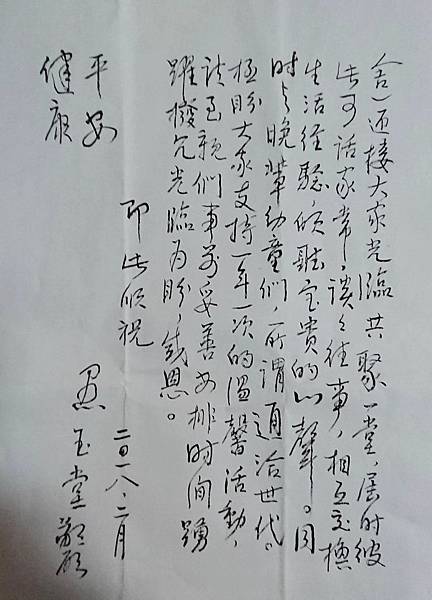 舍)迎接大家光臨共聚一堂,屆時彼
此可話家常,談々往事,相互交換
生活經驗,傾聽宝贵的心聲。同
时与晚輩幼童們,所謂通洽世代。
極盼大家支持一年一次的溫馨活動,
諸至親們事前妥善安排时间踴
躍撥冗光臨为盼,感恩。
即此順祝
平安
健康
愚玉堂敬啟
二〇一八、二月